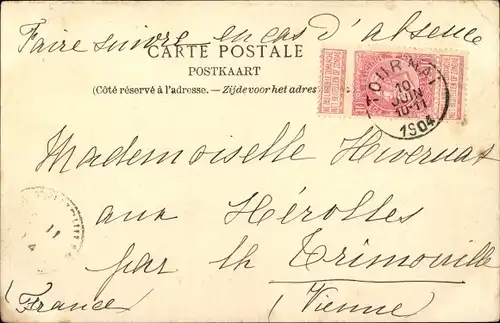 Faire suivre en cas d'absence
CARTE POSTALE
POSTKAART
(Côté réservé à l'adresse. — Zijde voor het adres
TOURNAI
10
JUIN
10-11
1904
Mademoiselle Hivernat
aux Hérolles
par la Trimouille
(France) (Vienne)
11